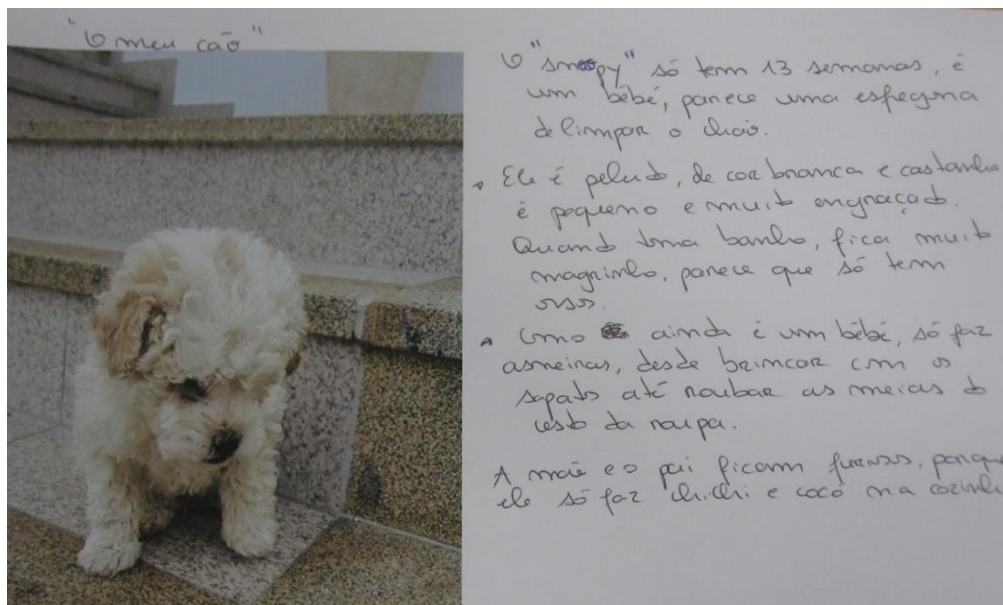 "O meu cão"
O "snoopy" só tem 13 semanas, é
um bébé, parece uma esfregona
de limpar o chão.
Ele é peludo, de cor branca e castanha
é pequeno e muito engraçado.
Quando toma banho, fica muito
magrinho, parece que só tem
osso.
Como ainda é um bébé, só faz
asneiras, desde brincar com os
sapatos até roubar as meias do
cesto da roupa.
A mãe e o pai ficam furiosos, porque
ele só faz chichi e cocó na cozinha